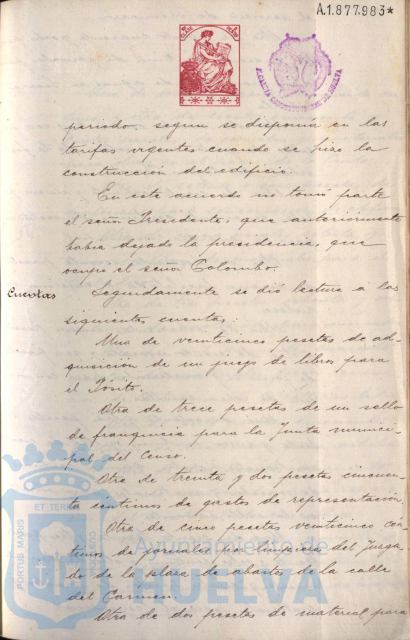 A.1.877.983*
periodo segun se disponia en las
tarifas vigentes cuando se hizo la
construcción del edificio.
En este acuerdo no tomó parte
el señor Presidente, que anteriormente
habia dejado la presidencia, que
ocupó el señor Colombo.
Cuentas
Seguidamente se dió lectura á las
siguientes cuentas:
Una de veinticinco pesetas de ad-
quisición de un juego de libros para
el Pósito.
Otra de trece pesetas de un sello
de franquicia para la Junta munici-
pal del Censo.
Otra de treinta y dos pesetas cincuen-
ta centimos de gastos de representación.
Otra de cinco pesetas veinticinco cen-
timos de jornales en limpieza del Juzga-
do de la plaza de abastos de la calle
del Carmen.
Otra de dos pesetas de material para
PORTUS MARIS
ET TERRÆ
CUSTODIA
Ayuntamiento de
HUELVA